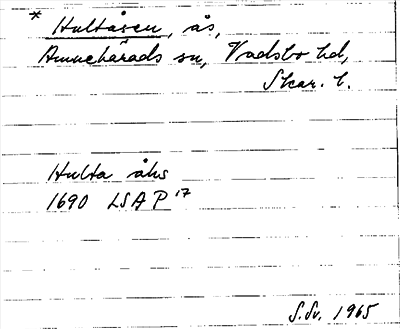 * Hultåsen, ås,
Amnehärads sn, Vadsbo hd,
Skar. l.
Hulta åhs
1690 LSA P 17
S.Sv. 1965